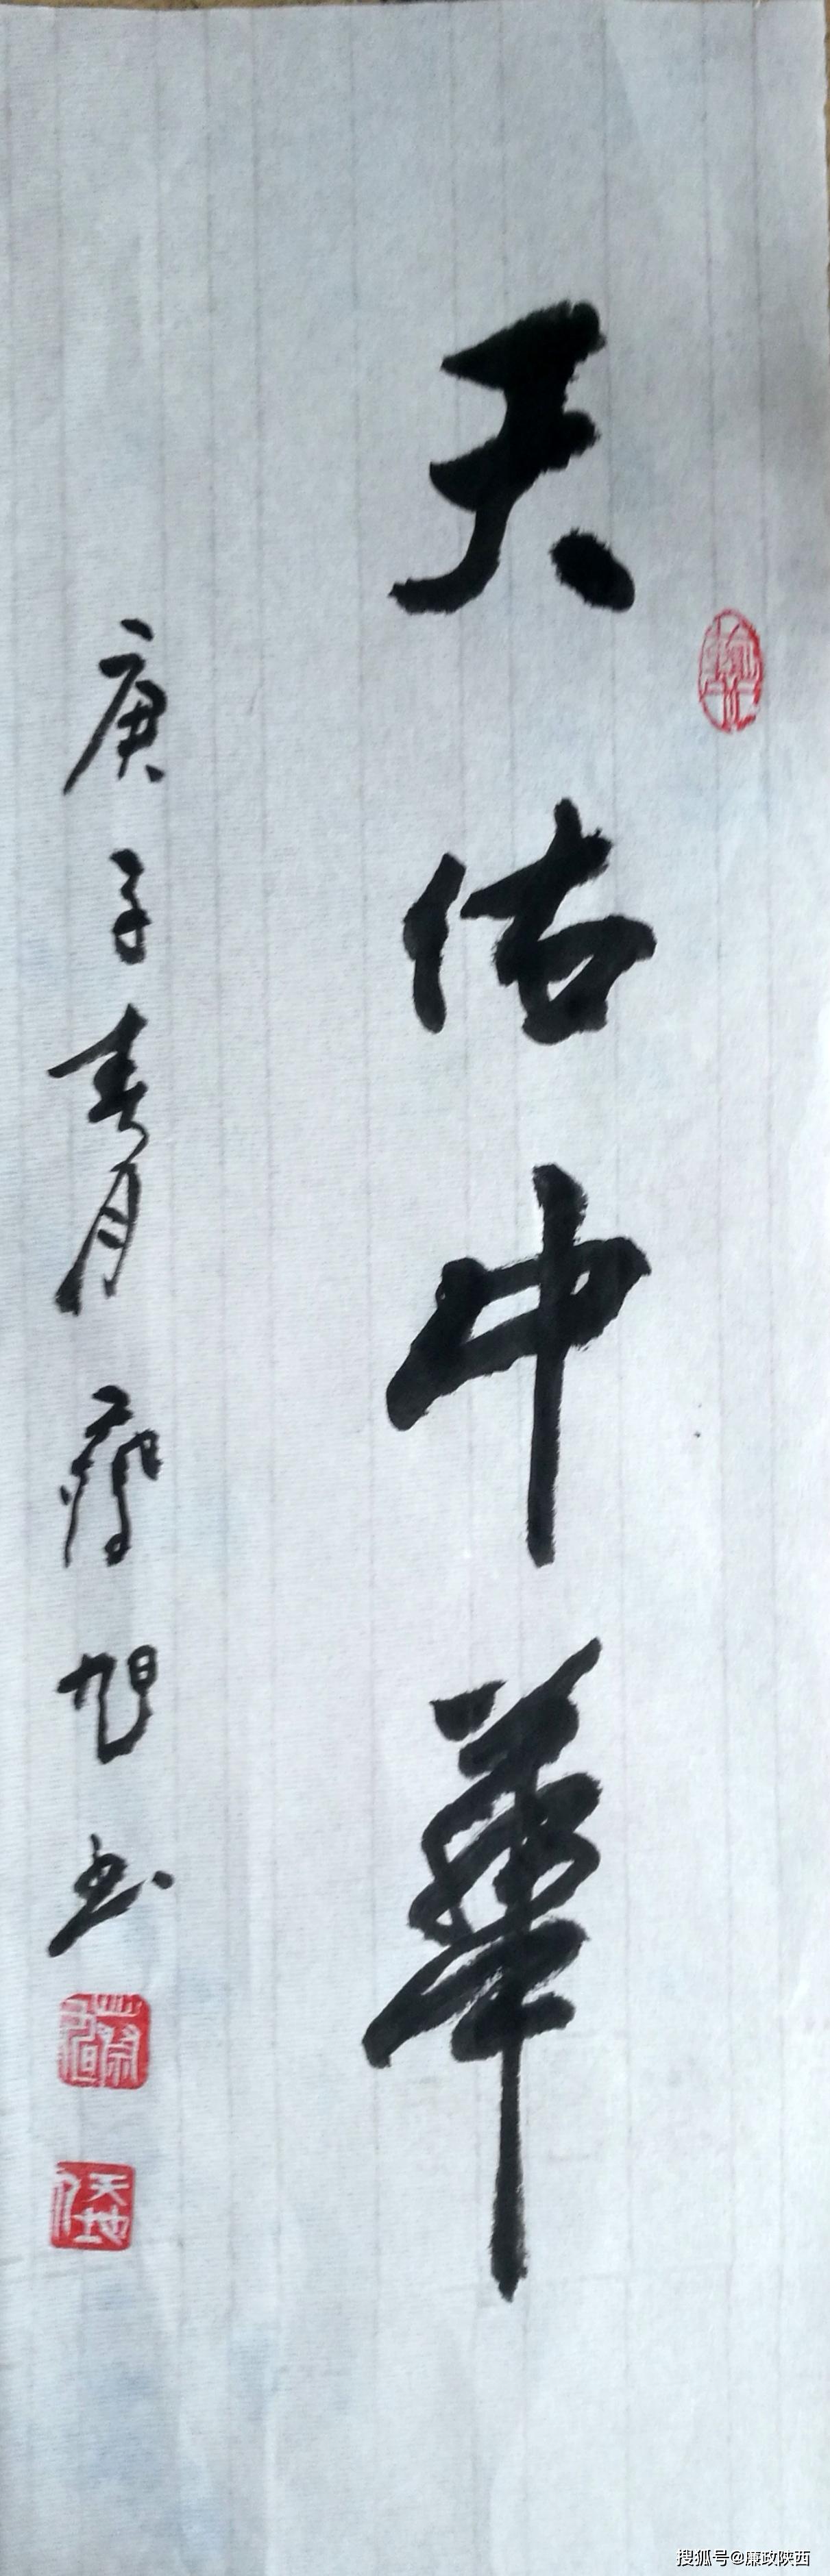 天佑中華
庚子春月 旭书
天地
搜狐号@廉政陕西